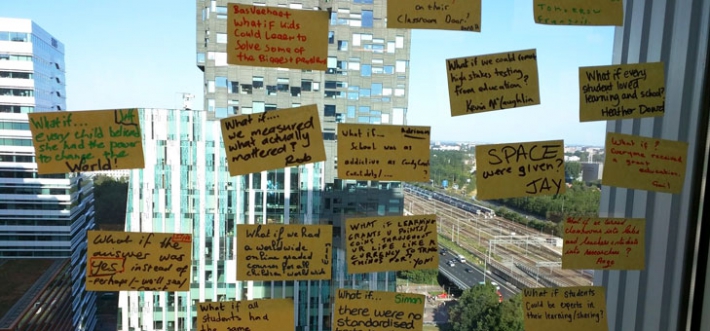 Bas Verhoef
What if kids
could learn to
solve some of
the biggest problems
on their
Classroom Door!
Tomorrow
What if we could
high stakes testing
from education?
Kevin McLaughlin
What if every
student loved
learning and school?
Heather Dowd
What if...
every child believed
she had the power
to change the
World!
What if...
we measured
what actually
mattered?
What if...
School was as
addictive as
SPACE
were given?
JAY
What if?
Everyone received
a great
education.
What if the
answer was
yes! instead of
-perhaps/-we'll see/
What if we had
a worldwide
online graded
common for all
children worldwide
WHAT IF LEARNING
GRANTS U POINTS/
COINS THROUGHOUT
UR LIFE LIKE A
CURRENCY TO TRADE
THINGS FOR?
What if we turned
classrooms into labs
and teachers & students
into researchers?
What if all
students had
the same
What if... Simon
there were no
standardised
What if students
Could be experts in
their learning/sharing?